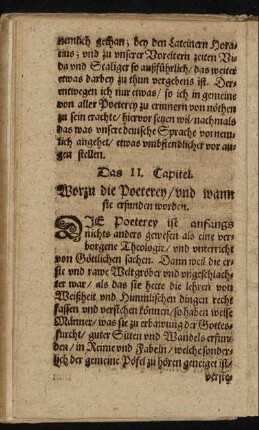 nemlich gethan; bey den Lateinern Hora-
tius; vnd zu vnserer Voreltern zeiten Vi-
da vnd Scaliger so außführlich/ das weiter
etwas darbey zu thun vergebens ist. Der-
entwegen ich nur etwas/ so ich in gemeine
von aller Poeterey zu erinnern von nöthen
zu sein erachte/ hiervor setzen wil/ nachmals
das was vnsere deutsche Sprache vornem-
lich angehet/ etwas vmbstendlicher vor au-
gen stellen.
Das II. Capitel.
Worzu die Poeterey/ vnd wann
sie erfunden worden.
DIE Poeterey ist anfangs
nichts anders gewesen als eine ver-
borgene Theologie/ vnd vnterricht
von Göttlichen sachen. Dann weil die er-
ste vnd rawe Welt gröber vnd vngeschlach-
ter war/ als das sie hette die lehren von
Weißheit vnd Himmlischen dingen recht
fassen vnd verstehen können/ so haben weise
Männer/ was sie zu erbawung der Gottes-
furcht/ guter Sitten vnd Wandels erfun-
den/ in Reime vnd Fabeln/ welche sonder-
lich der gemeine Pöfel zu hören geneiget ist/